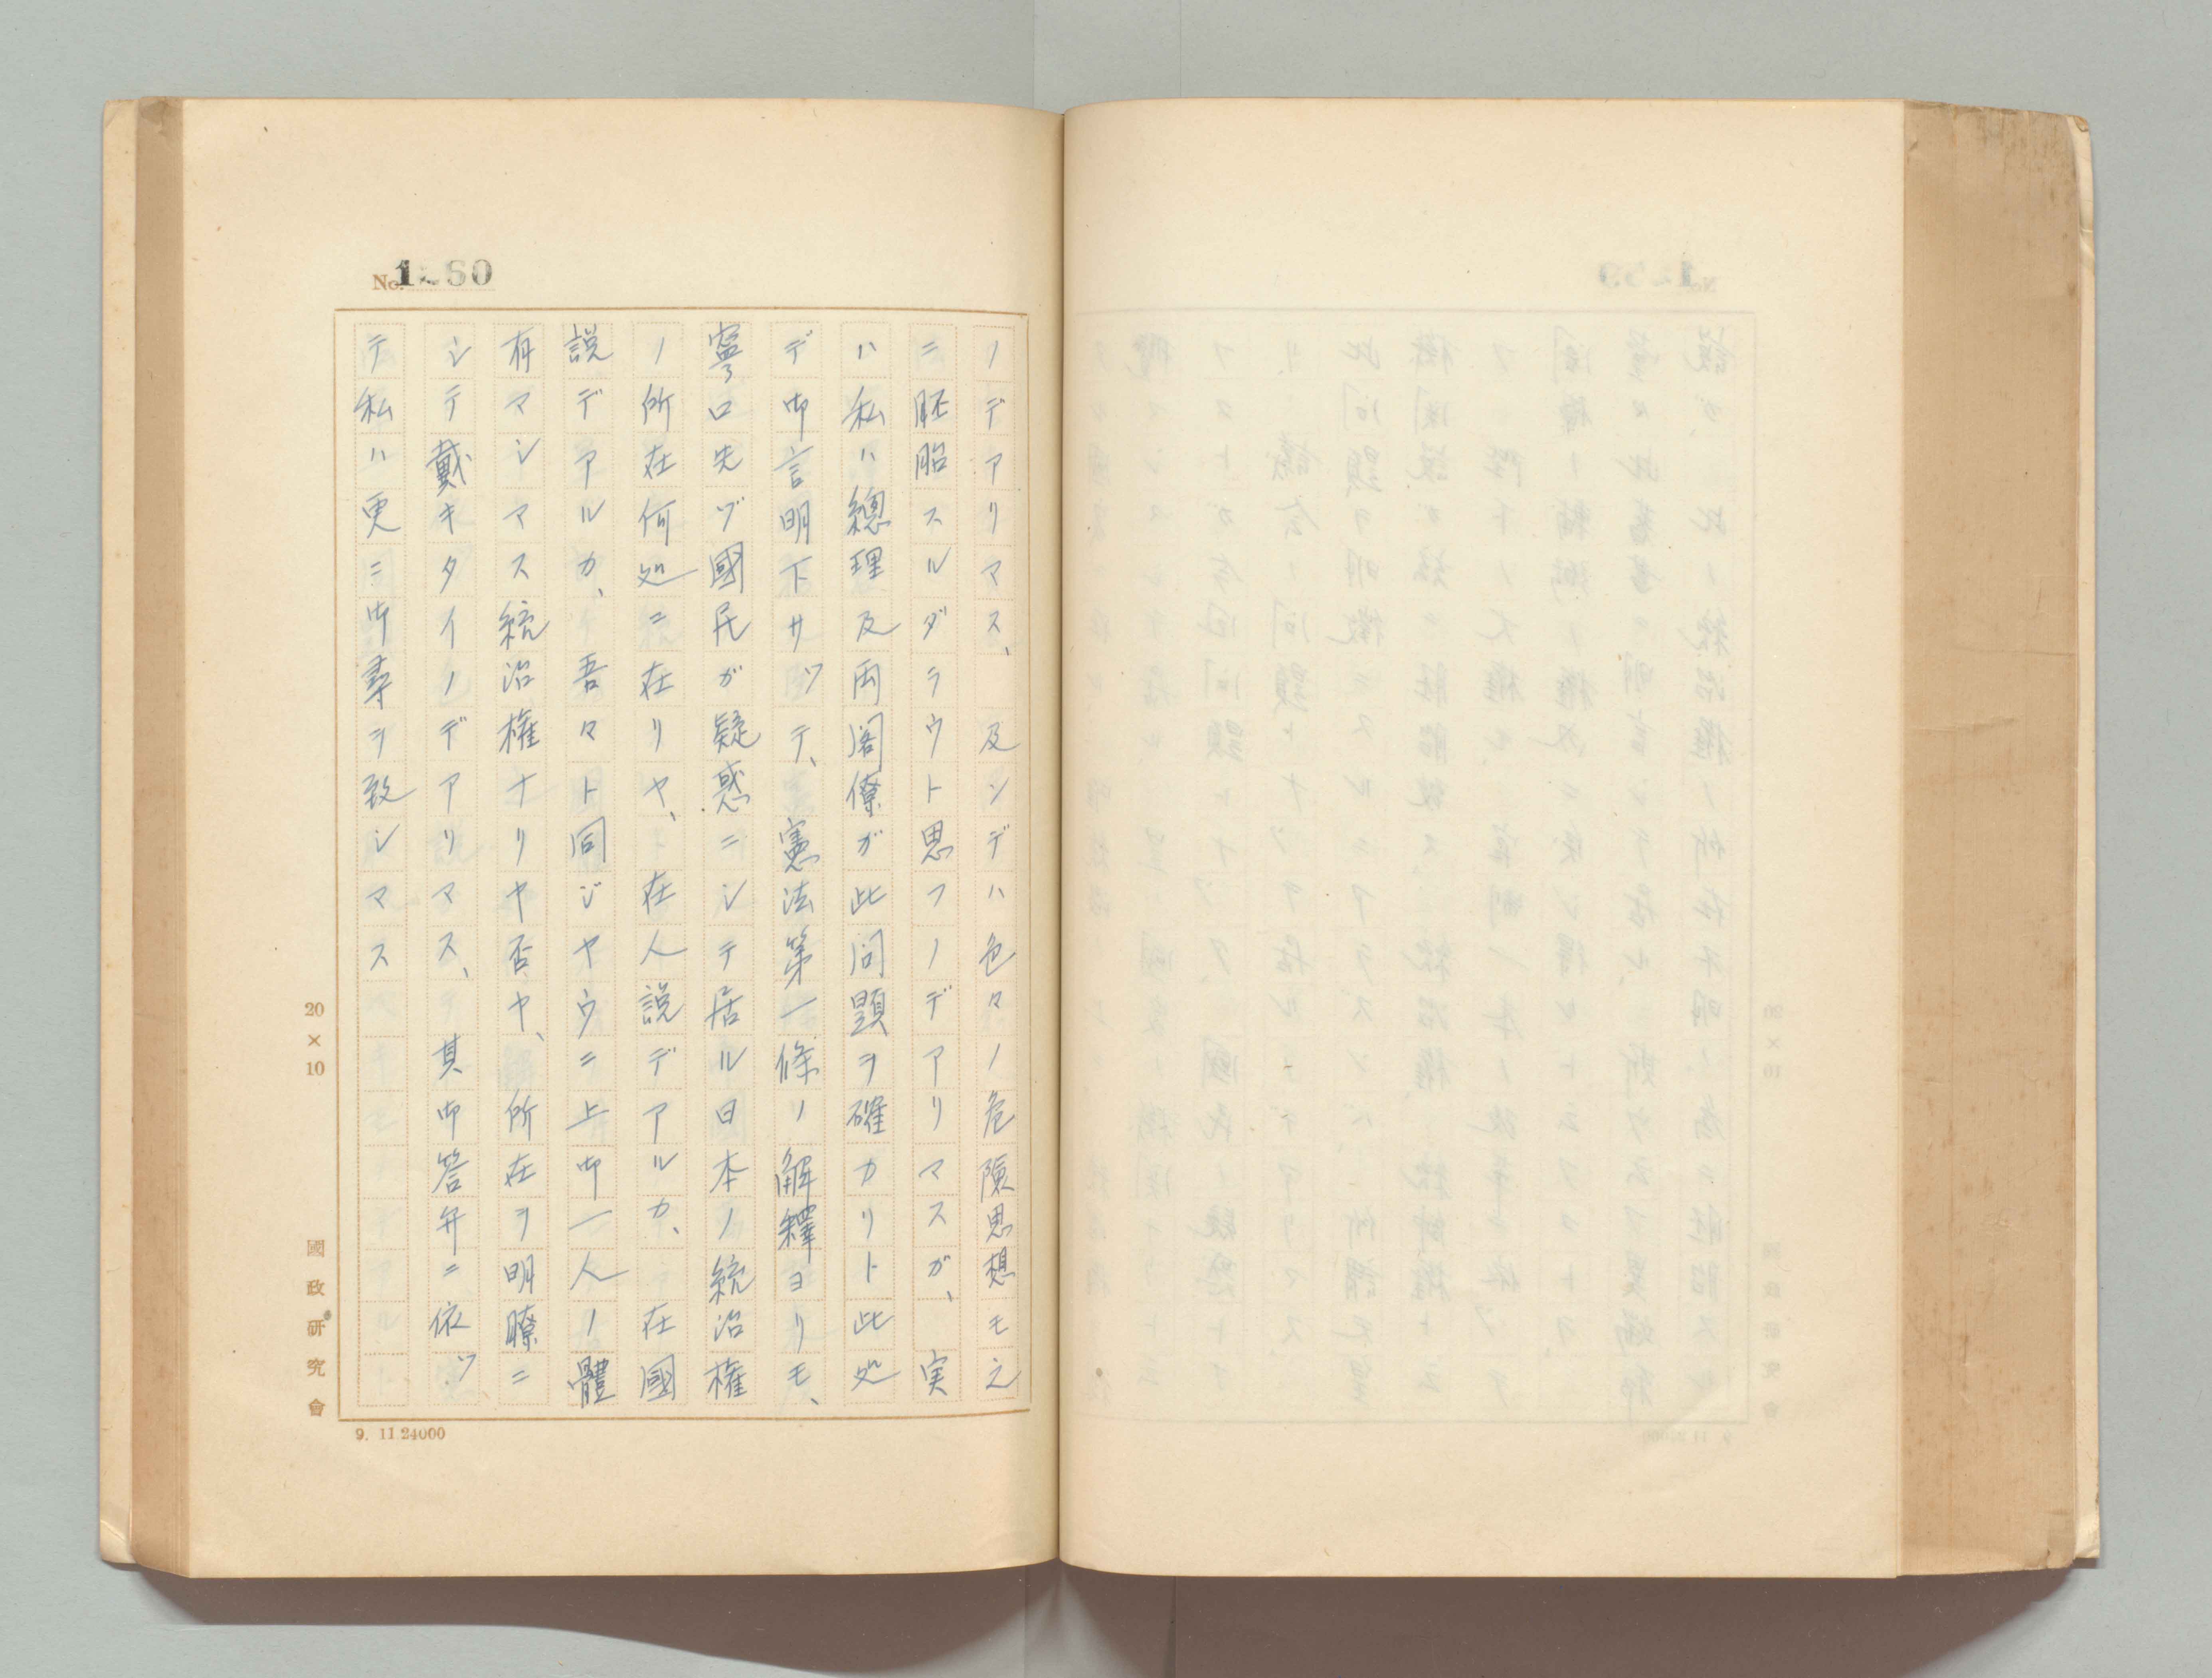 No. 1260
ノデアリマス、及ンデハ色々ノ危險思想モ之
ニ胚胎スルダラウト思フノデアリマスガ、実
ハ私ハ總理及両閣僚ガ此問題ヲ確カリト此処
デ御言明下サッテ、憲法第一條ノ解釋ヨリモ、
寧ロ先ヅ國民ガ疑惑ニシテ居ル日本ノ統治權
ノ所在何処ニ在リヤ、在人説デアルカ、在國
説デアルカ、吾々ト同ジヤウニ上御一人ノ體
有マシマス統治權ナリヤ否ヤ、所在ヲ明瞭ニ
シテ戴キタイノデアリマス、其御答弁ニ依ッ
テ私ハ更ニ御尋ヲ致シマス
20×10
國政研究會
9. 11.24000